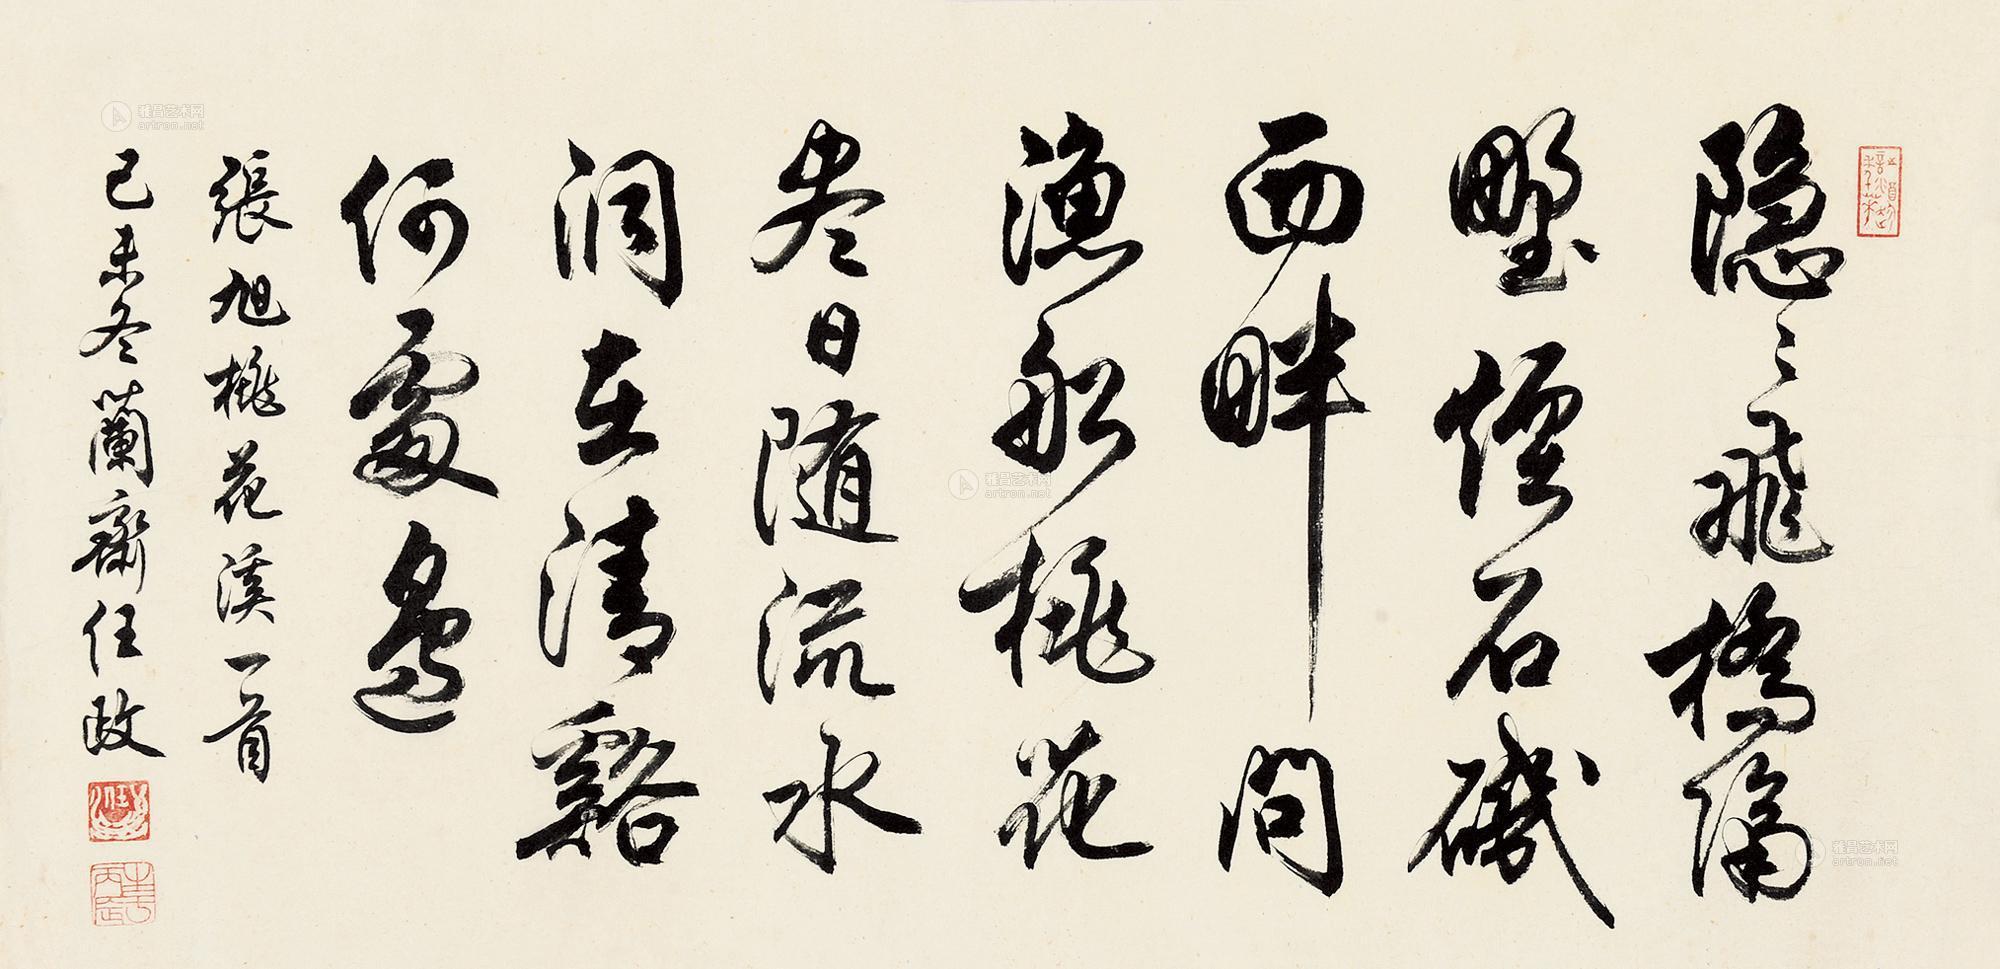 隐〻飛橋隔
野煙石磯
西畔問
漁船桃花
尽日随流水
洞在清谿
何處邊
張旭桃花溪一首
己未冬蘭齋任政
雅昌艺术网
artron.net
雅昌艺术网
artron.net
雅昌艺术网
artron.net